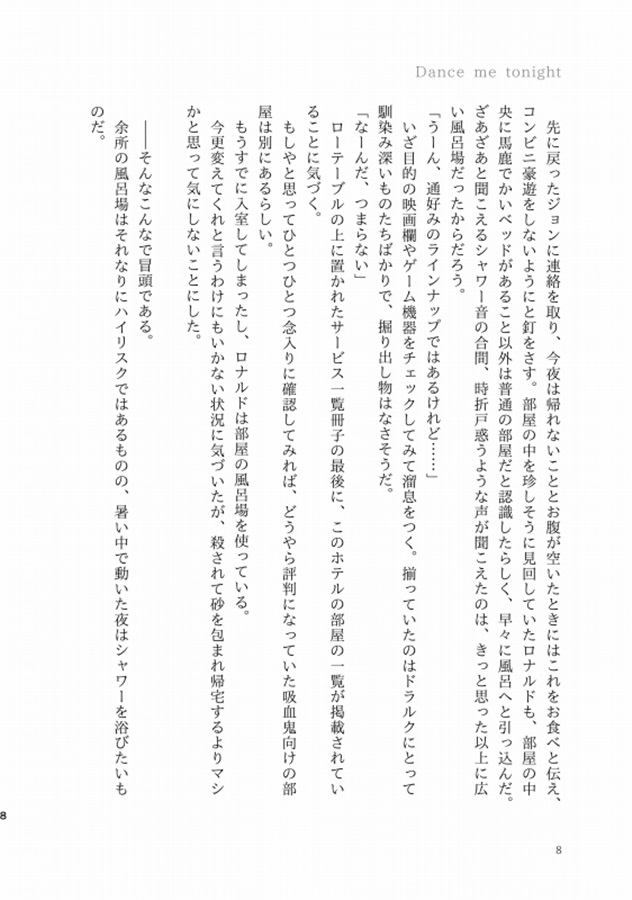 Dance me tonight
　先に戻ったジョンに連絡を取り、今夜は帰れないこととお腹が空いたときにはこれをお食べと伝え、
コンビニ豪遊をしないようにと釘をさす。部屋の中を珍しそうに見回していたロナルドも、部屋の中
央に馬鹿でかいベッドがあること以外は普通の部屋だと認識したらしく、早々に風呂へと引っ込んだ。
ざあざあと聞こえるシャワー音の合間、時折戸惑うような声が聞こえたのは、きっと思った以上に広
い風呂場だったからだろう。
「うーん、通好みのラインナップではあるけれど……」
　いざ目的の映画欄やゲーム機器をチェックしてみて溜息をつく。揃っていたのはドラルクにとって
馴染み深いものたちばかりで、掘り出し物はなさそうだ。
「なーんだ、つまらない」
　ローテーブルの上に置かれたサービス一覧冊子の最後に、このホテルの部屋の一覧が掲載されてい
ることに気づく。
　もしやと思ってひとつひとつ念入りに確認してみれば、どうやら評判になっていた吸血鬼向けの部
屋は別にあるらしい。
　もうすでに入室してしまったし、ロナルドは部屋の風呂場を使っている。
　今更変えてくれと言うわけにもいかない状況に気づいたが、殺されて砂を包まれ帰宅するよりマシ
かと思って気にしないことにした。
　――そんなこんなで冒頭である。
　余所の風呂場はそれなりにハイリスクではあるものの、暑い中で動いた夜はシャワーを浴びたいも
のだ。
8
8